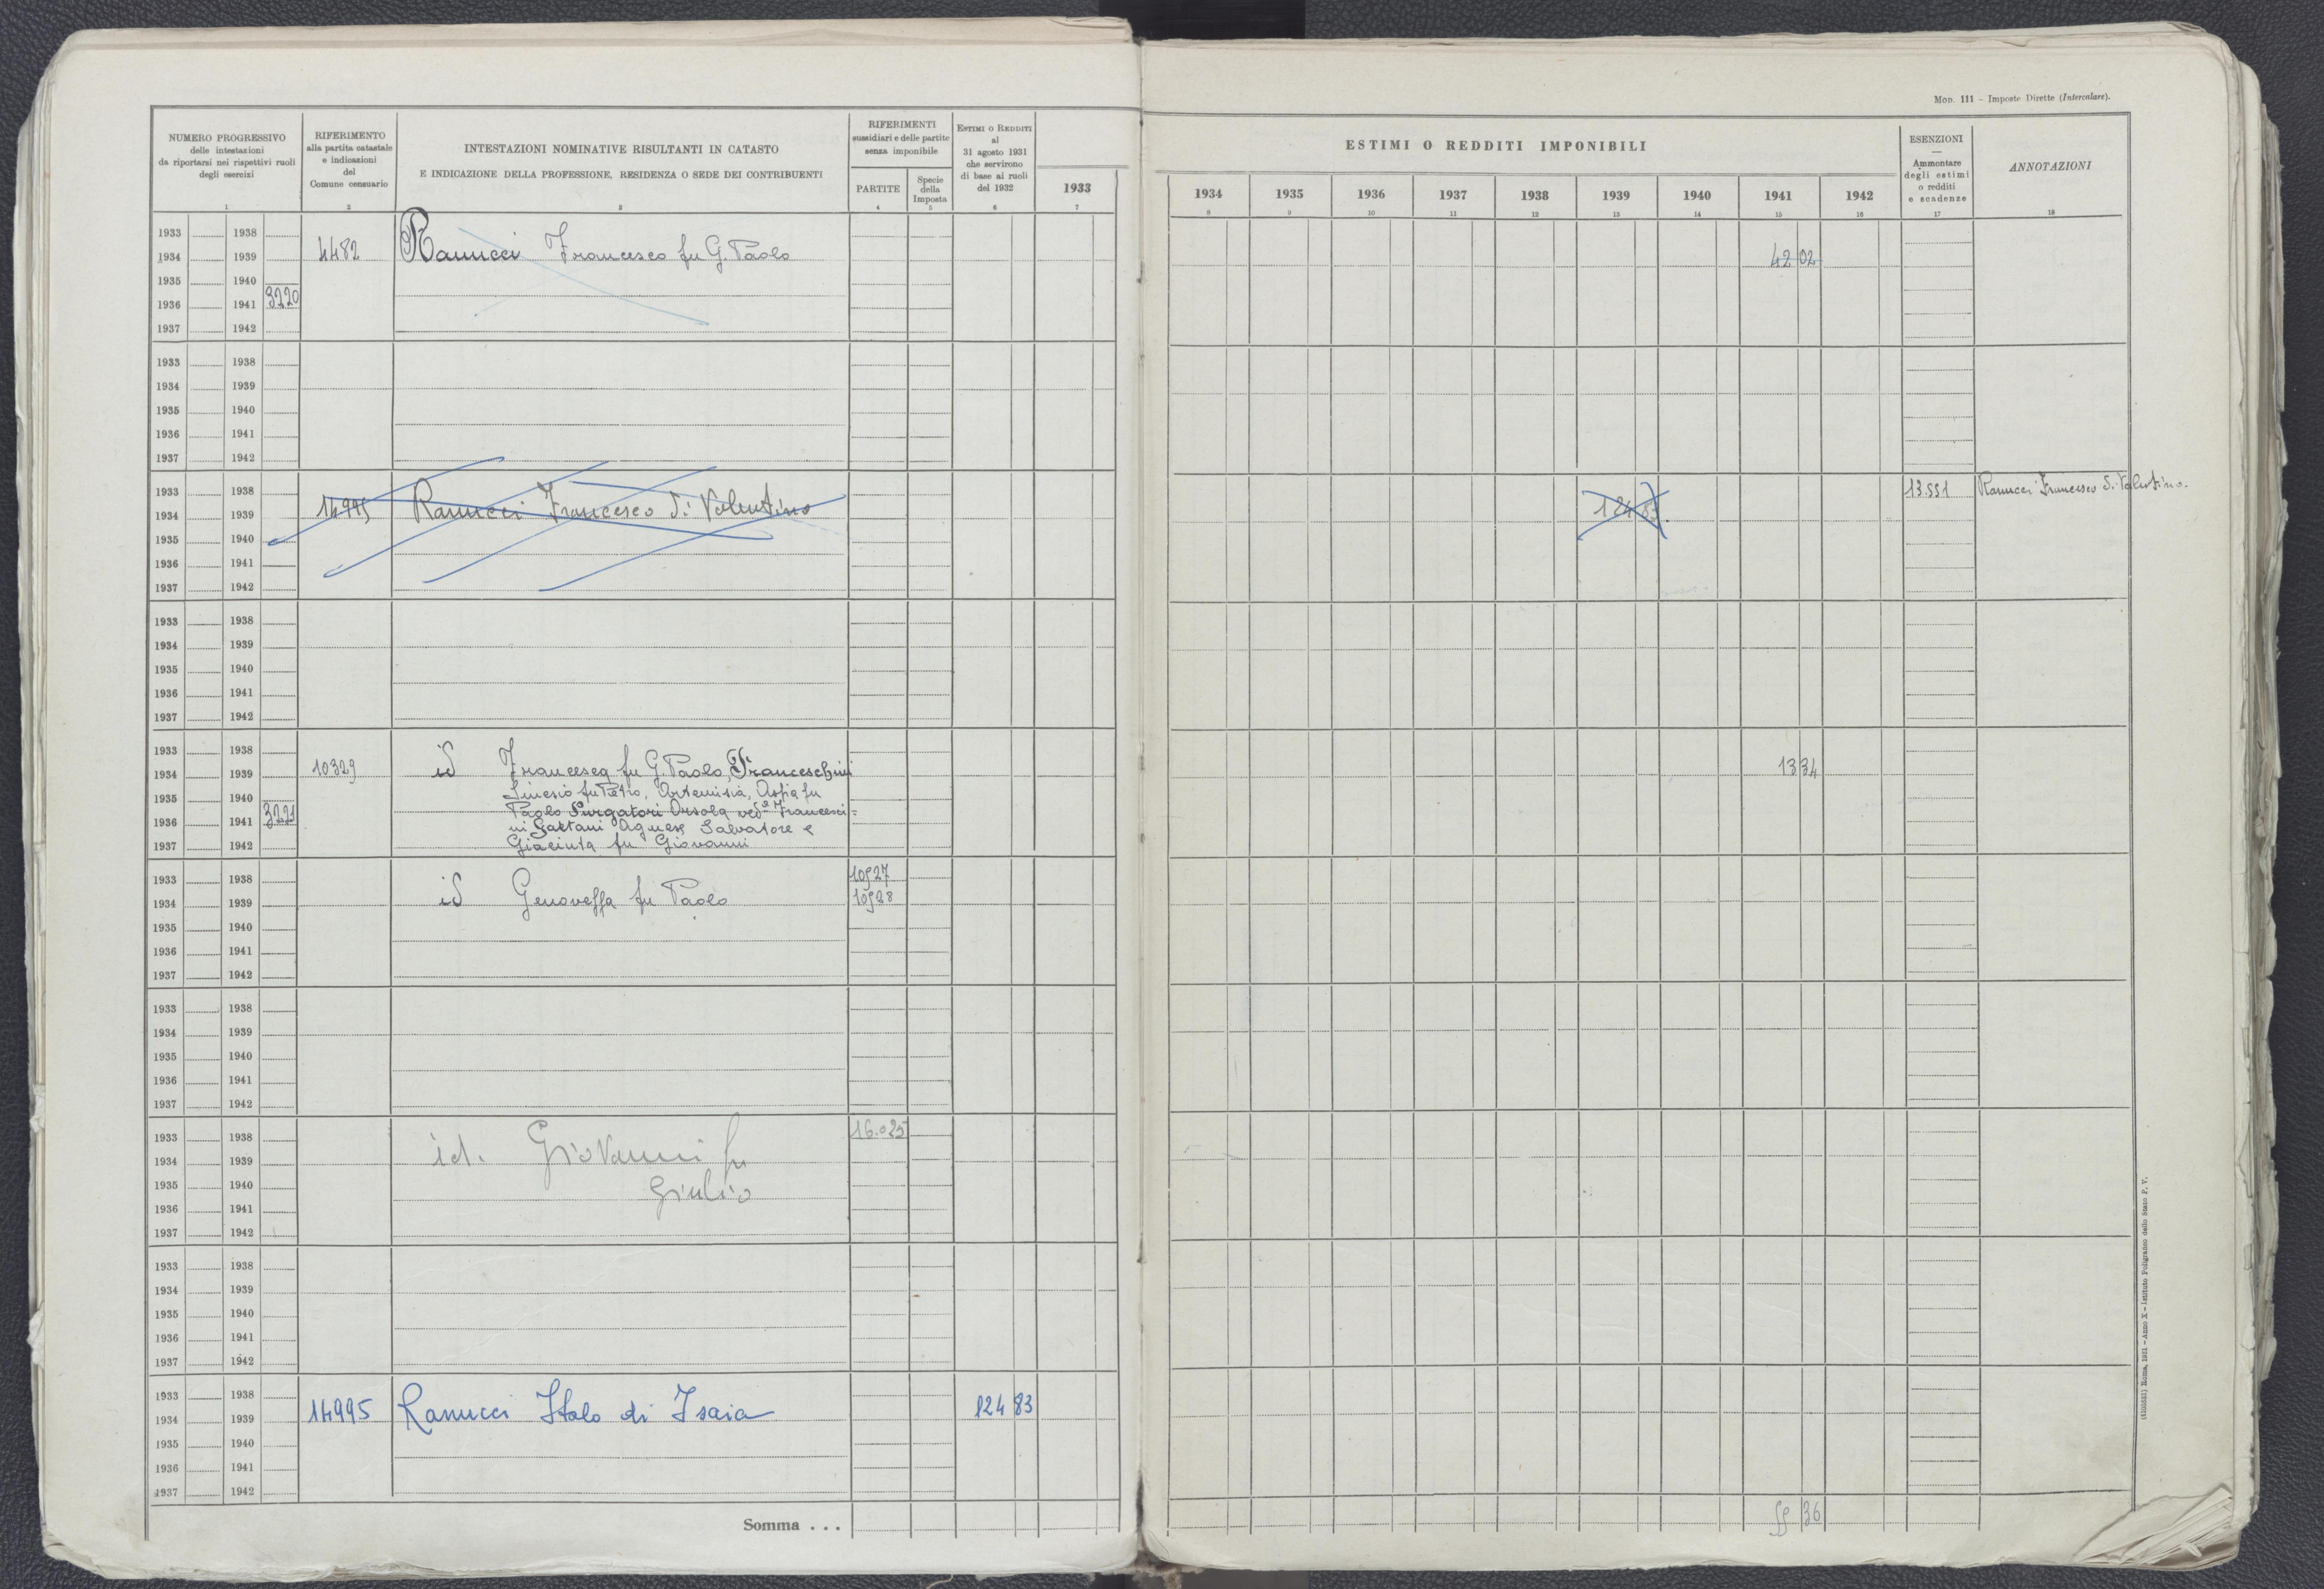 Mod. 111 - Imposte Dirette (Intercalare).
NUMERO PROGRESSIVO
delle intestazioni
da riportarsi nei rispettivi ruoli
degli esercizi
1
RIFERIMENTO
alla partita catastale
e indicazioni
del
Comune censuario
2
INTESTAZIONI NOMINATIVE RISULTANTI IN CATASTO
E INDICAZIONE DELLA PROFESSIONE, RESIDENZA O SEDE DEI CONTRIBUENTI
3
RIFERIMENTI
sussidiari e delle partite
senza imponibile
PARTITE
4
Specie
della
Imposta
5
ESTIMI O REDDITI
al
31 agosto 1931
che servirono
di base ai ruoli
del 1932
6
1933
7
ESTIMI O REDDITI IMPONIBILI
1934 1935 1936 1937 1938 1939 1940 1941 1942
8 9 10 11 12 13 14 15 16
ESENZIONI
Ammontare
degli estimi
o redditi
e scadenze
17
ANNOTAZIONI
18
1933 1938
1934 1939 4482 Ranucci Francesco fu G. Paolo 42 02
1935 1940
1936 1941 3220
1937 1942
1933 1938
1934 1939
1935 1940
1936 1941
1937 1942
1933 1938 13.551 Ranucci Francesco di Valentino.
1934 1939 14995 Ranucci Francesco di Valentino 124 83
1935 1940
1936 1941
1937 1942
1933 1938
1934 1939
1935 1940
1936 1941
1937 1942
1933 1938
1934 1939 10329 id Francesca fu G. Paolo, Franceschini 13 34
1935 1940 Sinesio fu Petro, Artemisia, Aspia fu
1936 1941 3221 Paolo Purgatori Orsola ved.a Francesci=
ni Gaetani Agnese Salvatore e
1937 1942 Giacinta fu Giovanni
1933 1938 10927
1934 1939 id Genoveffa fu Paolo 10928
1935 1940
1936 1941
1937 1942
1933 1938
1934 1939
1935 1940
1936 1941
1937 1942
1933 1938 16.025
1934 1939 id. Giovanni fu
1935 1940 Giulio
1936 1941
1937 1942
1933 1938
1934 1939
1935 1940
1936 1941
1937 1942
1933 1938
1934 1939 14995 Ranucci Italo di Isaia 124 83
1935 1940
1936 1941
1937 1942
Somma . . . 55 36
Roma, 1931 - Anno X - Istituto Poligrafico dello Stato P. V.